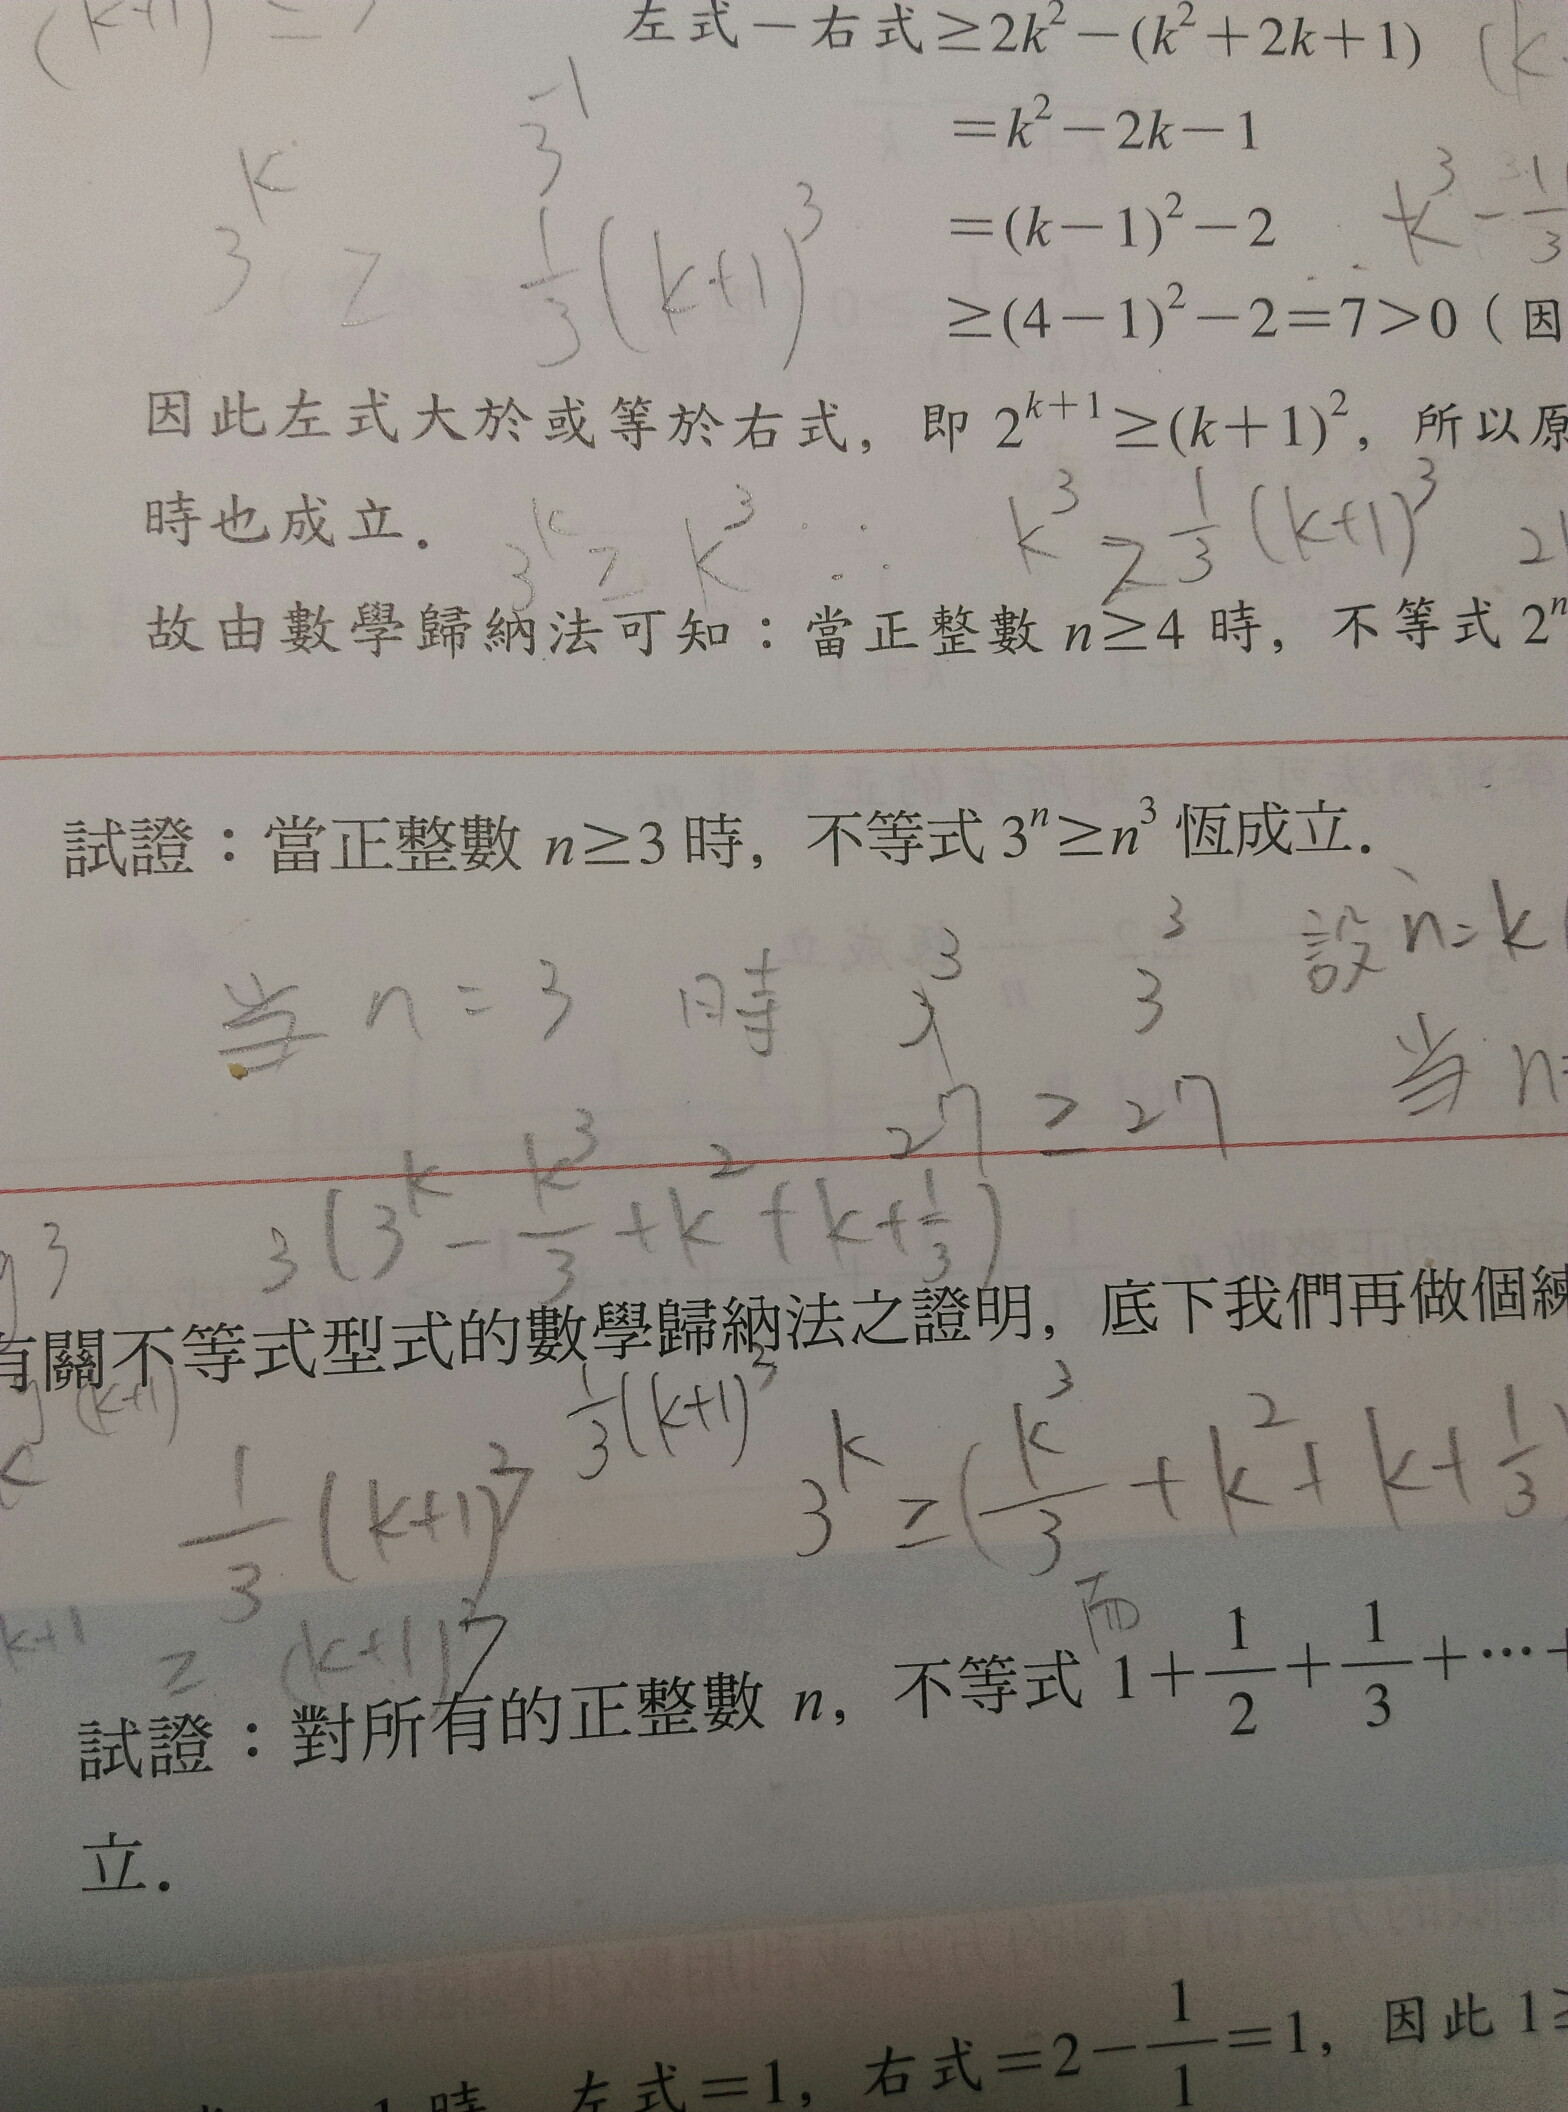 (k+1) ≥
左式－右式≥2k²－(k²＋2k＋1)
＝k²－2k－1
3⁻¹
＝(k－1)²－2
3ᵏ ≥ 1/3 (k+1)³
k³ - 1/3
≥(4－1)²－2＝7＞0（因
因此左式大於或等於右式，即 2ᵏ⁺¹≥(k＋1)²，所以原
時也成立．
3ᵏ ≥ k³ ∵ k³ ≥ 1/3 (k+1)³
故由數學歸納法可知：當正整數 n≥4 時，不等式 2ⁿ
試證：當正整數 n≥3 時，不等式 3ⁿ≥n³ 恆成立．
当 n = 3 時 3³ 3³ 設 n = k
27 ≥ 27 当 n=
3(3ᵏ - k³/3 + k² + k + 1/3)
有關不等式型式的數學歸納法之證明，底下我們再做個練
(k+1)
1/3 (k+1)³
1/3 (k+1)² 3ᵏ ≥ (k³/3 + k² + k + 1/3)
k+1 ≥ (k+1)² 而
試證：對所有的正整數 n，不等式 1＋1/2＋1/3＋⋯＋
立．
1 時，左式＝1，右式＝2－1/1＝1，因此 1≥